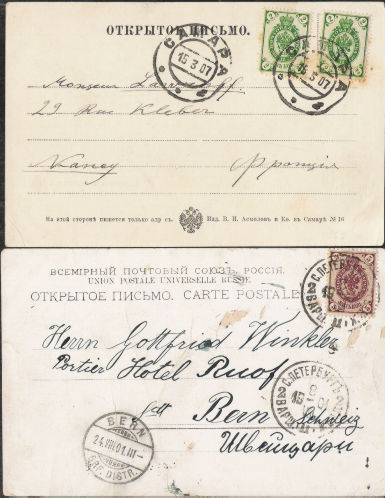 ОТКРЫТОЕ ПИСЬМО.
САМАРА
15 3 07
Monsieur
29 Rue Kleber
Nancy Франція
На этой сторонѣ пишется только адресъ.
Изд. В. Н. Асмолов и Ко. въ Самарѣ № 16
ВСЕМІРНЫЙ ПОЧТОВЫЙ СОЮЗЪ. РОССІЯ.
UNION POSTALE UNIVERSELLE RUSSIE
ОТКРЫТОЕ ПИСЬМО. CARTE POSTALE
Herrn Gottfried Winkler
Portier Hotel Ruof
Bern Schweiz
Швейцари
BERN
24.VIII.01.III
BRF. DISTR.
С.ПЕТЕРБУРГ